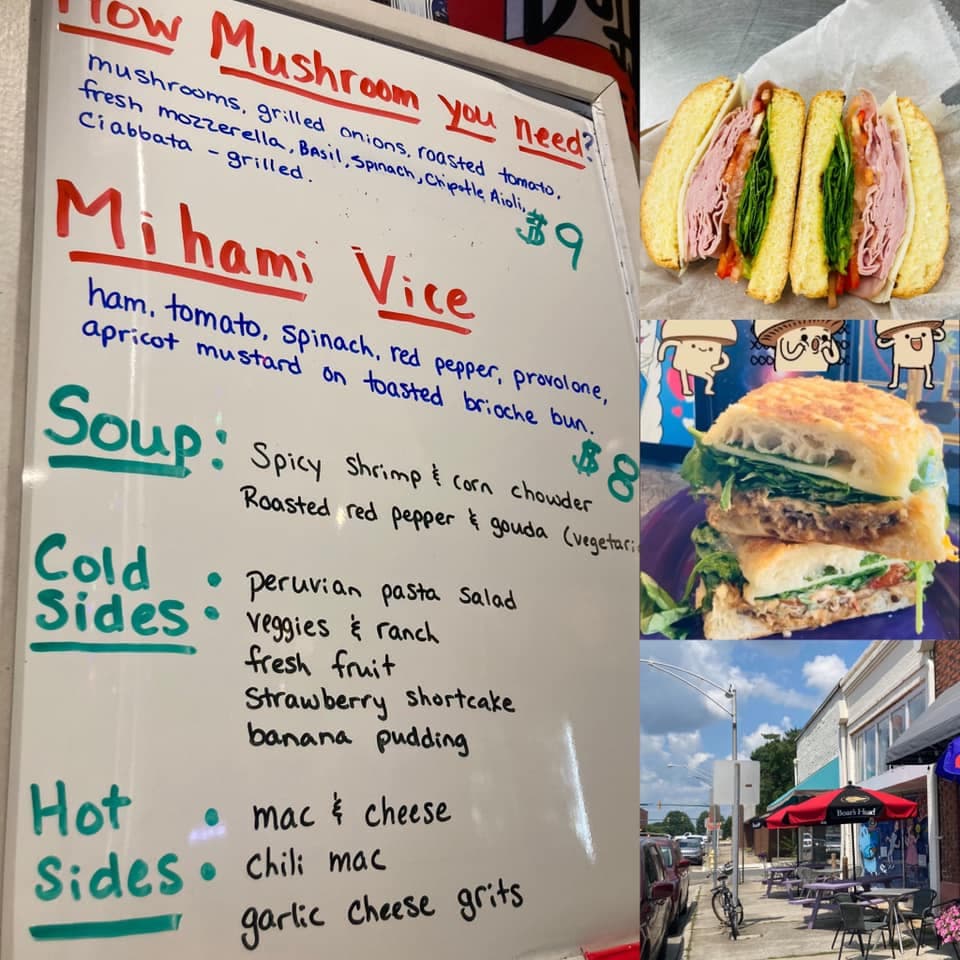 How Mushroom you need?
mushrooms, grilled onions, roasted tomato,
fresh mozzerella, BAsil, Spinach, Chipotle Aioli,
Ciabbata - grilled.
$9
Mihami Vice
ham, tomato, spinach, red pepper, provolone,
apricot mustard on toasted brioche bun.
$8
Soup: Spicy Shrimp & corn chowder
Roasted red pepper & gouda (vegetari
Cold Sides:
peruvian pasta salad
veggies & ranch
fresh fruit
Strawberry shortcake
banana pudding
Hot Sides:
mac & cheese
chili mac
garlic cheese grits
Boar's Head